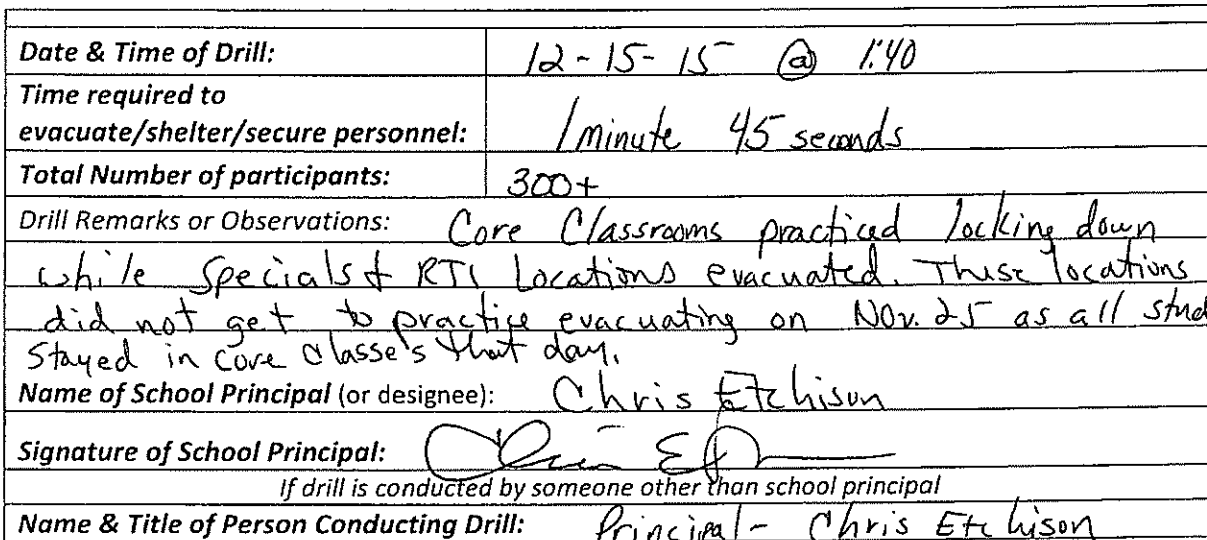 Date & Time of Drill: 12-15-15 @ 1:40
Time required to
evacuate/shelter/secure personnel: 1 minute 45 seconds
Total Number of participants: 300+
Drill Remarks or Observations: Core Classrooms practiced locking down
while Specials & RTI Locations evacuated. These locations
did not get to practice evacuating on Nov. 25 as all stud
stayed in core classes that day.
Name of School Principal (or designee): Chris Etchison
Signature of School Principal: Chris E
If drill is conducted by someone other than school principal
Name & Title of Person Conducting Drill: Principal - Chris Etchison